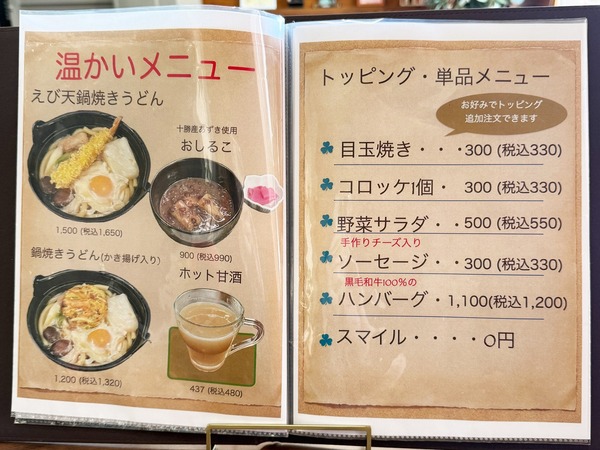 温かいメニュー
えび天鍋焼きうどん
1,500 (税込1,650)
十勝産あずき使用
おしるこ
900 (税込990)
鍋焼きうどん(かき揚げ入り)
1,200 (税込1,320)
ホット甘酒
437 (税込480)
トッピング・単品メニュー
お好みでトッピング
追加注文できます
目玉焼き・・・300 (税込330)
コロッケ1個・ 300 (税込330)
野菜サラダ・・500 (税込550)
手作りチーズ入り
ソーセージ・・300 (税込330)
黒毛和牛100%の
ハンバーグ・1,100(税込1,200)
スマイル・・・・0円